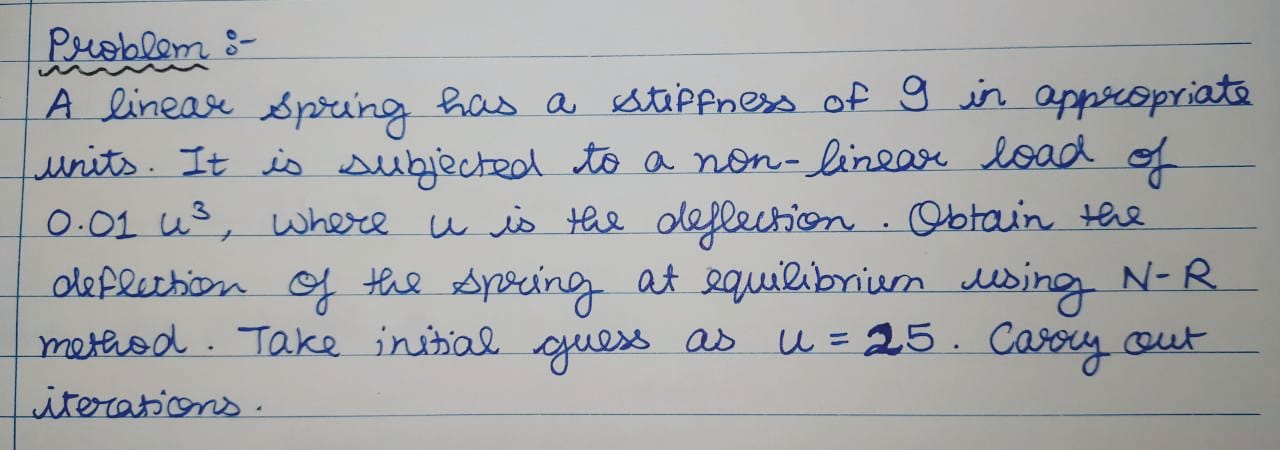 Problem :-
A linear spring has a stiffness of 9 in appropriate
units. It is subjected to a non-linear load of
0.01 u³, where u is the deflection. Obtain the
deflection of the spring at equilibrium using N-R
method. Take initial guess as u = 25. Carry out
iterations.